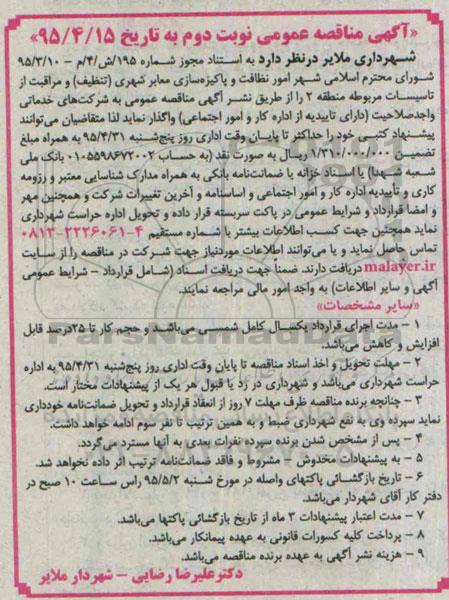 «آگهی مناقصه عمومی نوبت دوم به تاریخ ۹۵/۴/۱۵»
شهرداری ملایر درنظر دارد به استناد مجوز شماره ۱۹۵/ش/۴/م – ۹۵/۳/۱۰
شورای محترم اسلامی شهر امور نظافت و پاکیزه‌سازی معابر شهری (تنظیف) و مراقبت از
تاسیسات مربوطه منطقه ۲ را از طریق نشر آگهی مناقصه عمومی به شرکت‌های خدماتی
واجدصلاحیت (دارای تاییدیه از اداره کار و امور اجتماعی) واگذار نماید لذا متقاضیان می‌توانند
پیشنهاد کتبی خود را حداکثر تا پایان وقت اداری روز پنج‌شنبه ۹۵/۴/۳۱ به همراه مبلغ
تضمین ۱/۳۱۰/۰۰۰/۰۰۰ ریال به صورت نقد (به حساب ۰۱۰۵۵۹۸۶۷۳۰۰۲ بانک ملی
شعبه شهدا) یا اسناد خزانه یا ضمانت‌نامه بانکی به همراه مدارک شناسایی معتبر و رزومه
کاری و تأییدیه اداره کار و امور اجتماعی و اساسنامه و آخرین تغییرات شرکت و همچنین مهر
و امضا قرارداد و شرایط عمومی در پاکت سربسته قرار داده و تحویل اداره حراست شهرداری
نماید همچنین جهت کسب اطلاعات بیشتر با شماره مستقیم ۴-۲۲۲۶۰۶۱-۰۸۱۳
تماس حاصل نماید و یا می‌توانند اطلاعات موردنیاز جهت شرکت در مناقصه را از سایت
malayer.ir دریافت دارند. ضمناً جهت دریافت اسناد (شامل قرارداد – شرایط عمومی
آگهی و سایر اطلاعات) به واجد امور مالی مراجعه نمایند.
«سایر مشخصات»
۱ – مدت اجرای قرارداد یکسال کامل شمسی می‌باشد و حجم کار تا ۲۵درصد قابل
افزایش و کاهش می‌باشد.
۲ – مهلت تحویل و اخذ اسناد مناقصه تا پایان وقت اداری روز پنج‌شنبه ۹۵/۴/۳۱ به اداره
حراست شهرداری می‌باشد و شهرداری در رد یا قبول هر یک از پیشنهادات مختار است.
۳ – چنانچه برنده مناقصه ظرف مهلت ۷ روز از انعقاد قرارداد و تحویل ضمانت‌نامه خودداری
نماید سپرده وی به نفع شهرداری ضبط و به همین ترتیب تا نفر سوم ادامه خواهد داشت.
۴ – پس از مشخص شدن برنده سپرده نفرات بعدی به آنها مسترد می‌گردد.
۵ – به پیشنهادات مخدوش – مشروط و فاقد ضمانت‌نامه ترتیب اثر داده نخواهد شد.
۶ – تاریخ بازگشائی پاکتهای واصله در مورخ شنبه ۹۵/۵/۲ راس ساعت ۱۰ صبح در
دفتر کار آقای شهردار می‌باشد.
۷ – مدت اعتبار پیشنهادات ۳ ماه از تاریخ بازگشائی پاکتها می‌باشد.
۸ – پرداخت کلیه کسورات قانونی به عهده پیمانکار می‌باشد.
۹ – هزینه نشر آگهی به عهده برنده مناقصه می‌باشد.
دکترعلیرضا رضایی – شهردار ملایر